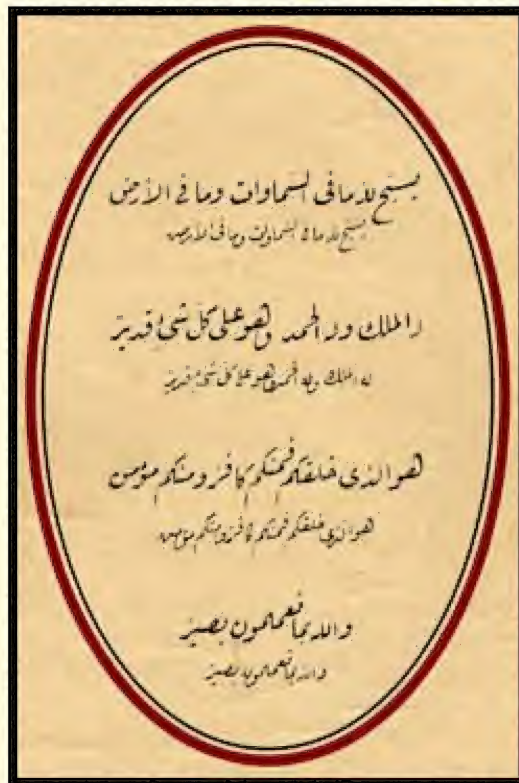 يسبح لله ما في السماوات وما في الأرض
يسبح لله ما في السماوات وما في الأرض
له الملك وله الحمد وهو على كل شيء قدير
له الملك وله الحمد وهو على كل شيء قدير
هو الذي خلقكم فمنكم كافر ومنكم مؤمن
هو الذي خلقكم فمنكم كافر ومنكم مؤمن
والله بما تعملون بصير
والله بما تعملون بصير